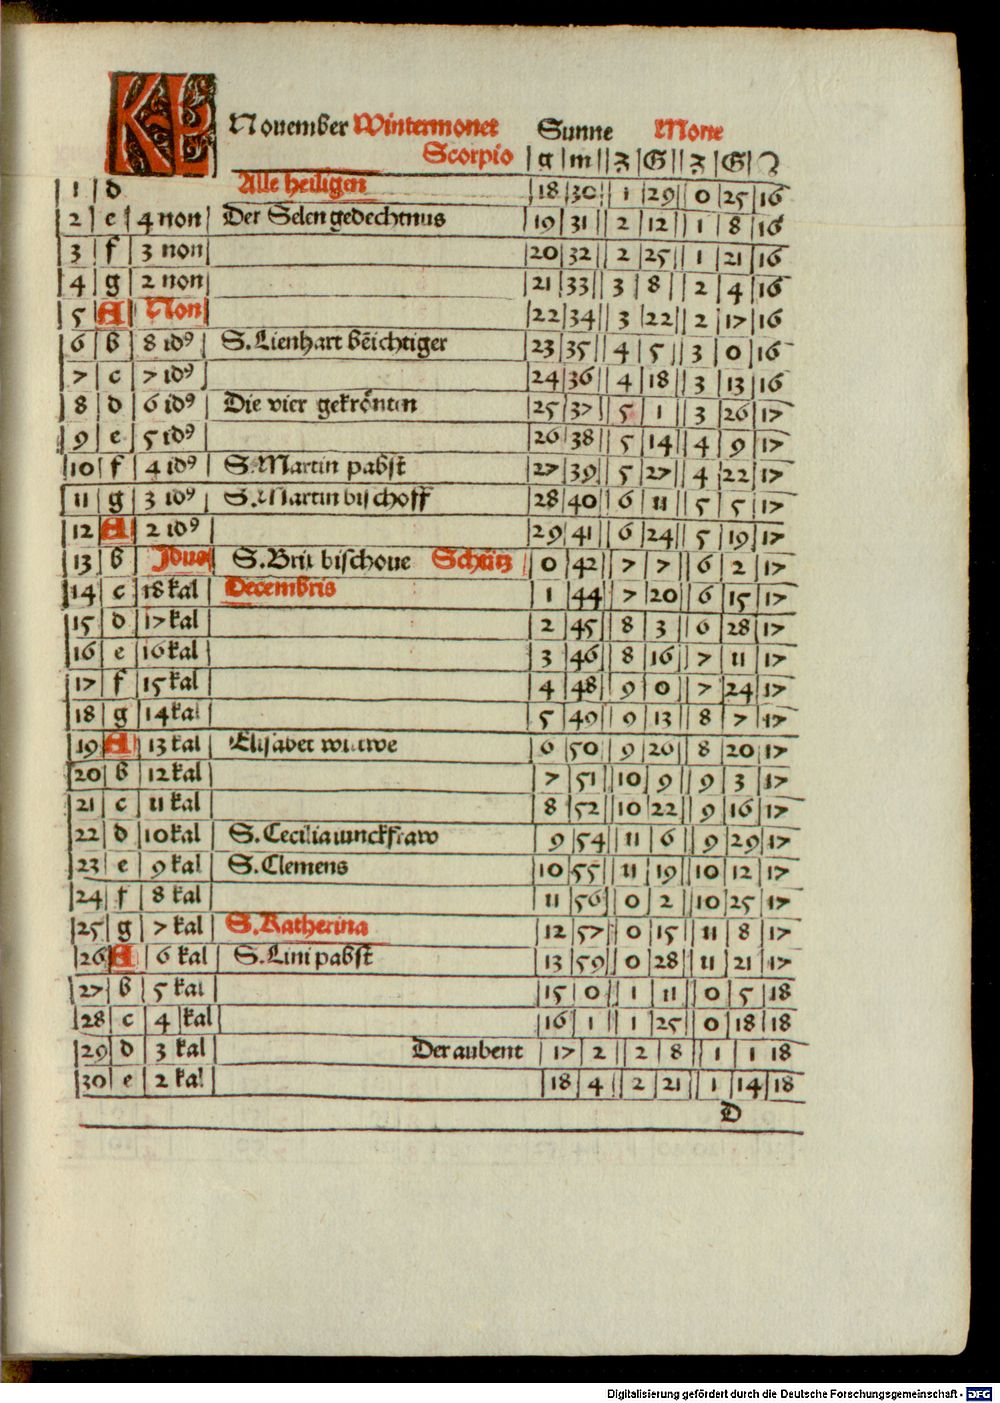 KL Nouember Wintermonet Sunne Mone
Scorpio g m Z G Z G
1 d Alle heiligen 18 30 1 29 0 25 16
2 e 4 non Der Selen gedechtnus 19 31 2 12 1 8 16
3 f 3 non 20 32 2 25 1 21 16
4 g 2 non 21 33 3 8 2 4 16
5 A Non 22 34 3 22 2 17 16
6 b 8 idꝰ S. Lienhart bēichtiger 23 35 4 5 3 0 16
7 c 7 idꝰ 24 36 4 18 3 13 16
8 d 6 idꝰ Die vier gekrönten 25 37 5 1 3 26 17
9 e 5 idꝰ 26 38 5 14 4 9 17
10 f 4 idꝰ S. Martin pabst 27 39 5 27 4 22 17
11 g 3 idꝰ S. Martin bischoff 28 40 6 11 5 5 17
12 A 2 idꝰ 29 41 6 24 5 19 17
13 b Idus S. Brit bischoue Schütz 0 42 7 7 6 2 17
14 c 18 kal Decembris 1 44 7 20 6 15 17
15 d 17 kal 2 45 8 3 6 28 17
16 e 16 kal 3 46 8 16 7 11 17
17 f 15 kal 4 48 9 0 7 24 17
18 g 14 kal 5 49 9 13 8 7 17
19 A 13 kal Elisabet wittwe 6 50 9 26 8 20 17
20 b 12 kal 7 51 10 9 9 3 17
21 c 11 kal 8 52 10 22 9 16 17
22 d 10 kal S. Cecilia iunckfraw 9 54 11 6 9 29 17
23 e 9 kal S. Clemens 10 55 11 19 10 12 17
24 f 8 kal 11 56 0 2 10 25 17
25 g 7 kal S. Katherina 12 57 0 15 11 8 17
26 A 6 kal S. Lini pabst 13 59 0 28 11 21 17
27 b 5 kal 15 0 1 11 0 5 18
28 c 4 kal 16 1 1 25 0 18 18
29 d 3 kal Der aubent 17 2 2 8 1 1 18
30 e 2 kal 18 4 2 21 1 14 18
D
Digitalisierung gefördert durch die Deutsche Forschungsgemeinschaft - DFG